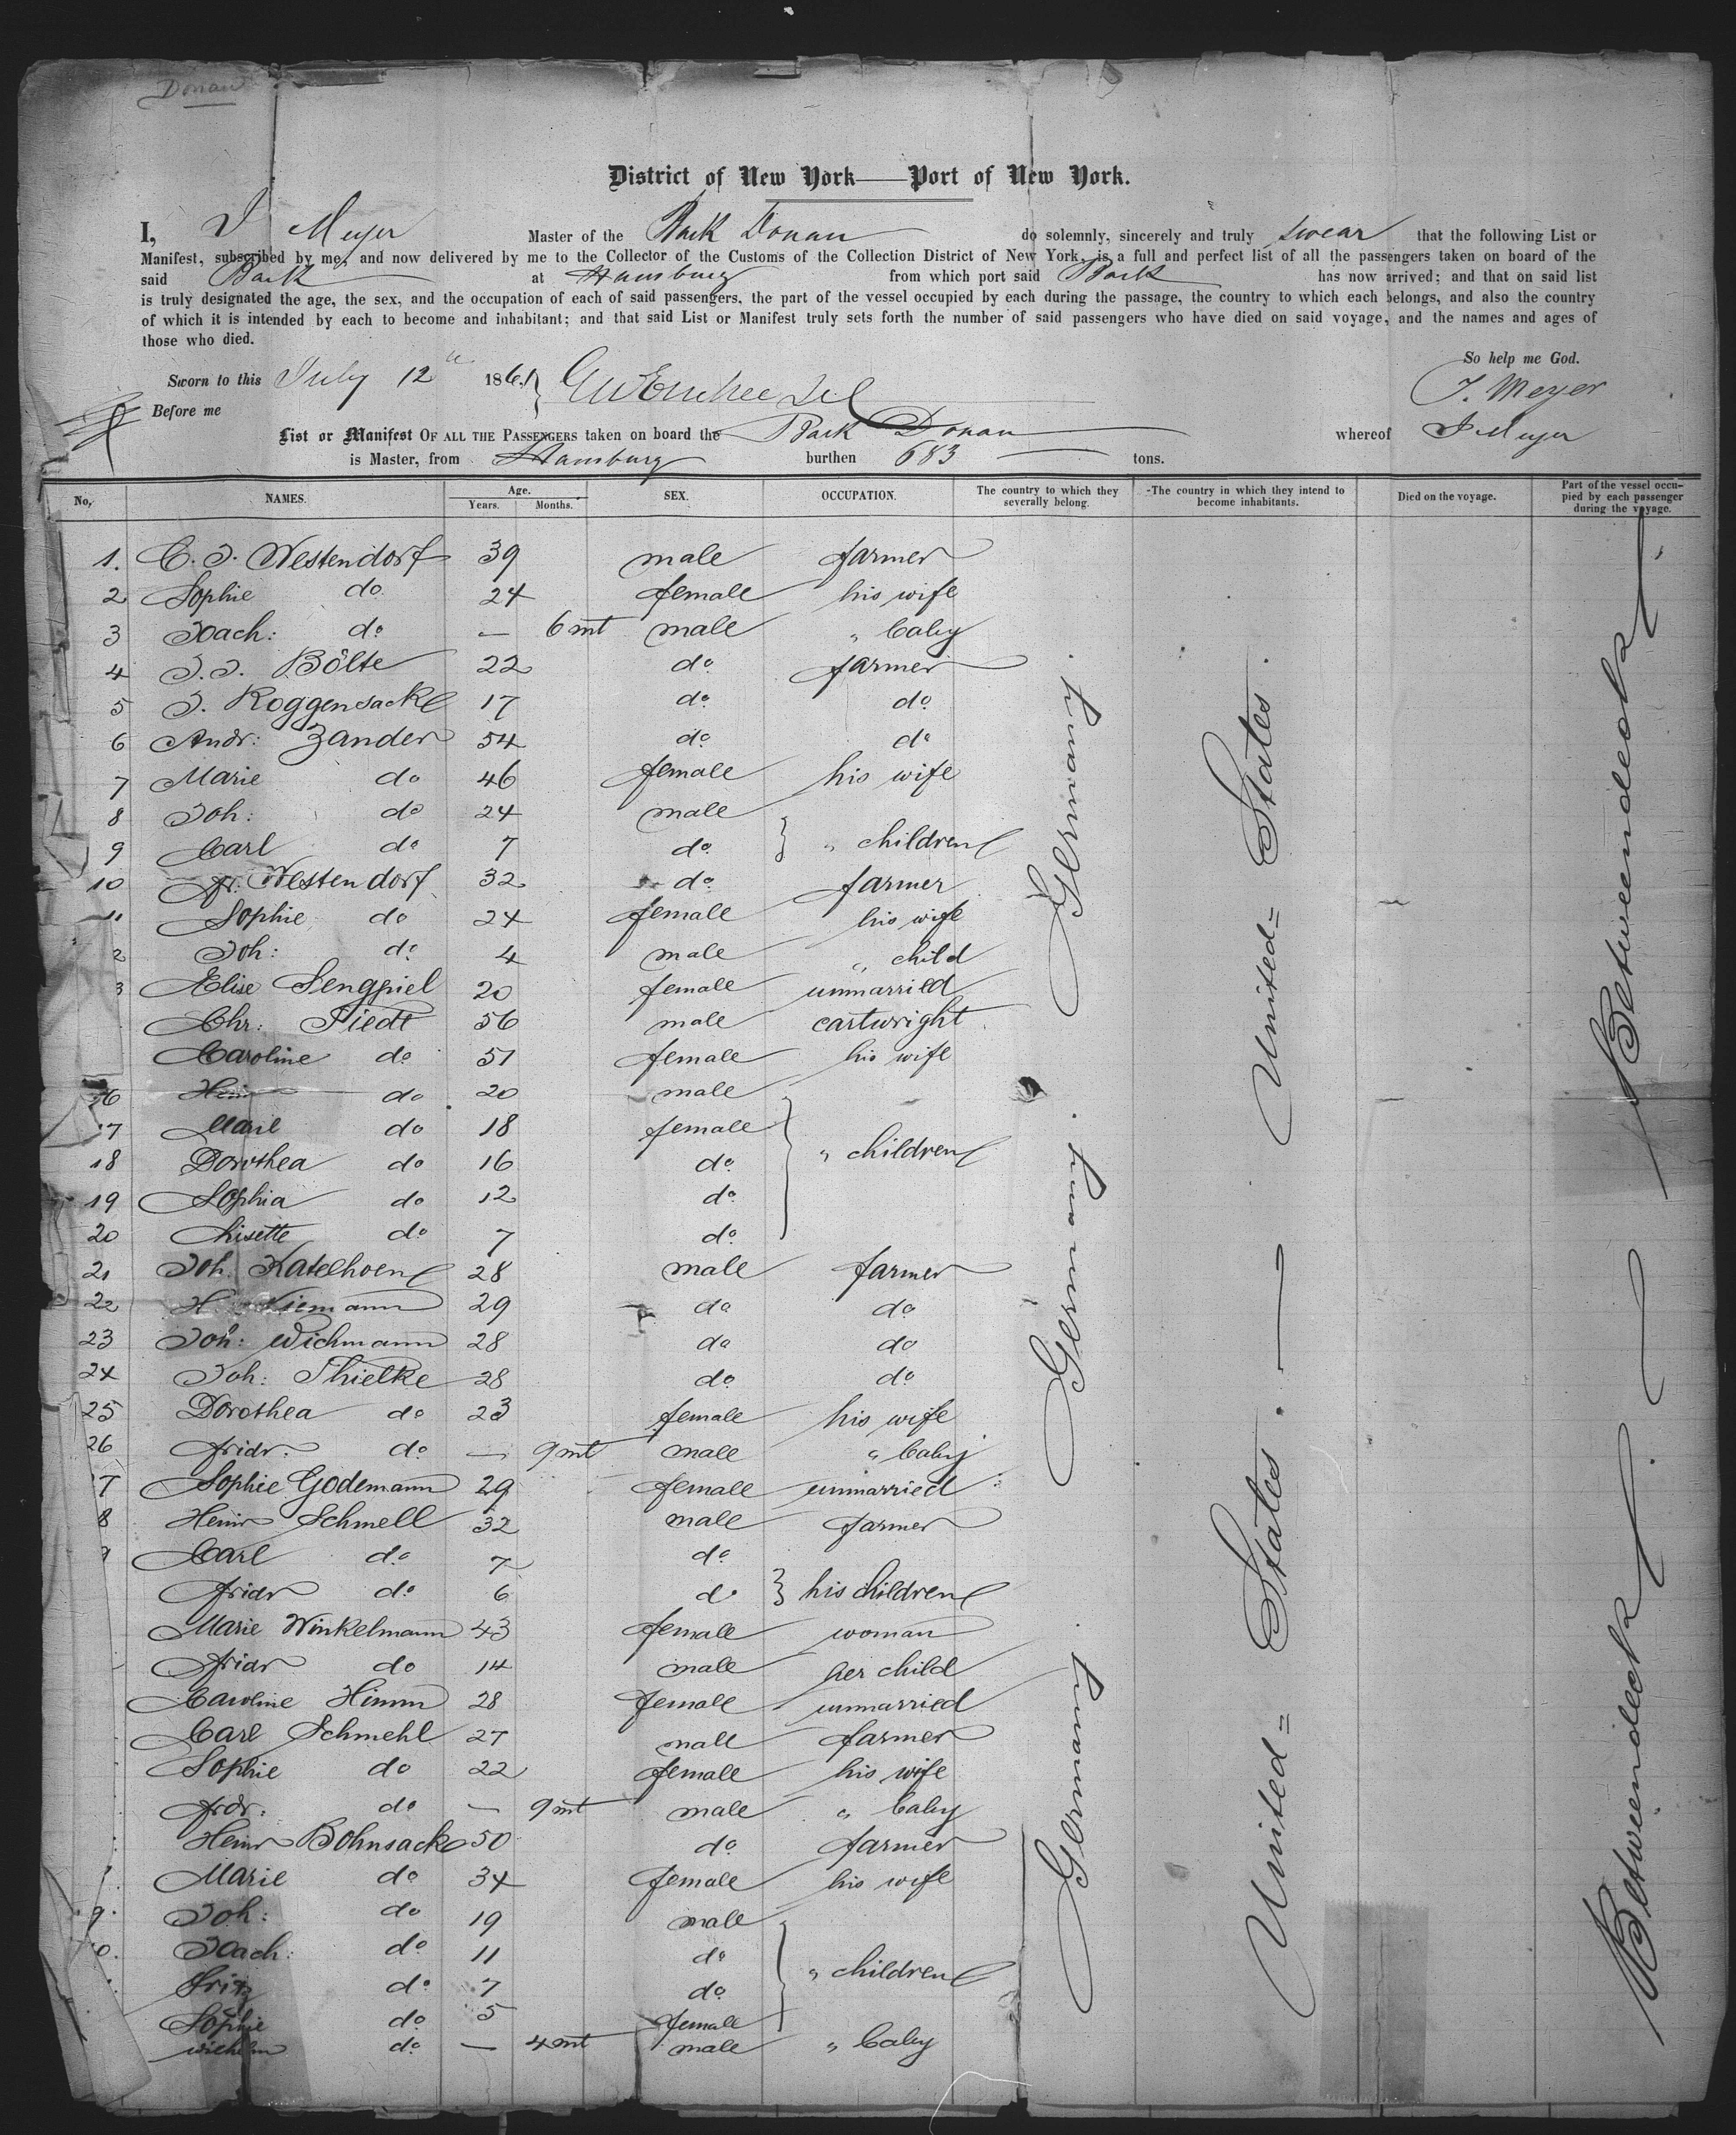 Donau
District of New York—Port of New York.
I, J Meyer Master of the Bark Donau do solemnly, sincerely and truly swear that the following List or
Manifest, subscribed by me, and now delivered by me to the Collector of the Customs of the Collection District of New York, is a full and perfect list of all the passengers taken on board of the
said Bark at Hamburg from which port said Bark has now arrived; and that on said list
is truly designated the age, the sex, and the occupation of each of said passengers, the part of the vessel occupied by each during the passage, the country to which each belongs, and also the country
of which it is intended by each to become and inhabitant; and that said List or Manifest truly sets forth the number of said passengers who have died on said voyage, and the names and ages of
those who died.
So help me God.
Sworn to this July 12th 1861
J. Meyer
Before me
List or Manifest OF ALL THE PASSENGERS taken on board the Bark Donau whereof J Meyer
is Master, from Hamburg burthen 683 tons.
No. NAMES. Age. Years. Months. SEX. OCCUPATION. The country to which they severally belong. -The country in which they intend to become inhabitants. Died on the voyage. Part of the vessel occu-pied by each passenger during the voyage.
1. C. J. Westendorf 39 male farmer
2 Sophie do 24 female his wife
3 Joach: do — 6 mt male " baby
4 J. J. Bölte 22 do farmer
5 J. Roggensack 17 do do
6 Andr: Zander 54 do do
7 Marie do 46 female his wife
8 Joh: do 24 male
9 Carl do 7 do " children
10 Fr. Westendorf 32 do farmer
11 Sophie do 24 female his wife
2 Joh: do 4 male " child
3 Elise Sengpiel 20 female unmarried
Chr: Tiedt 56 male cartwright
Caroline do 51 female his wife
16 Heinr do 20 male
17 Marie do 18 female
18 Dorothea do 16 do " children
19 Sophia do 12 do
20 Lisette do 7 do
21 Joh. Katelhoen 28 male farmer
22 H Niemann 29 do do
23 Joh: Wichmann 28 do do
24 Joh: Thielke 28 do do
25 Dorothea do 23 female his wife
26 Fridr. do — 9 mt male " baby
7 Sophie Godemann 29 female unmarried
8 Heinr Schmell 32 male farmer
9 Carl do 7 do
Fridr do 6 do his children
Marie Winkelmann 43 female woman
Fridr do 14 male her child
Caroline Himm 28 female unmarried
Carl Schmehl 27 male farmer
Sophie do 22 female his wife
Frdr: do — 9 mt male " baby
Heinr Bohnsack 50 do farmer
Marie do 34 female his wife
9. Joh: do 19 male
0. Joach: do 11 do
Fritz do 7 do " children
Sophie do 5 female
Wilhelm do — 4 mt male " baby
Germany.
Germany.
Germany.
United States.
United States.
Betweendeck
Betweendeck